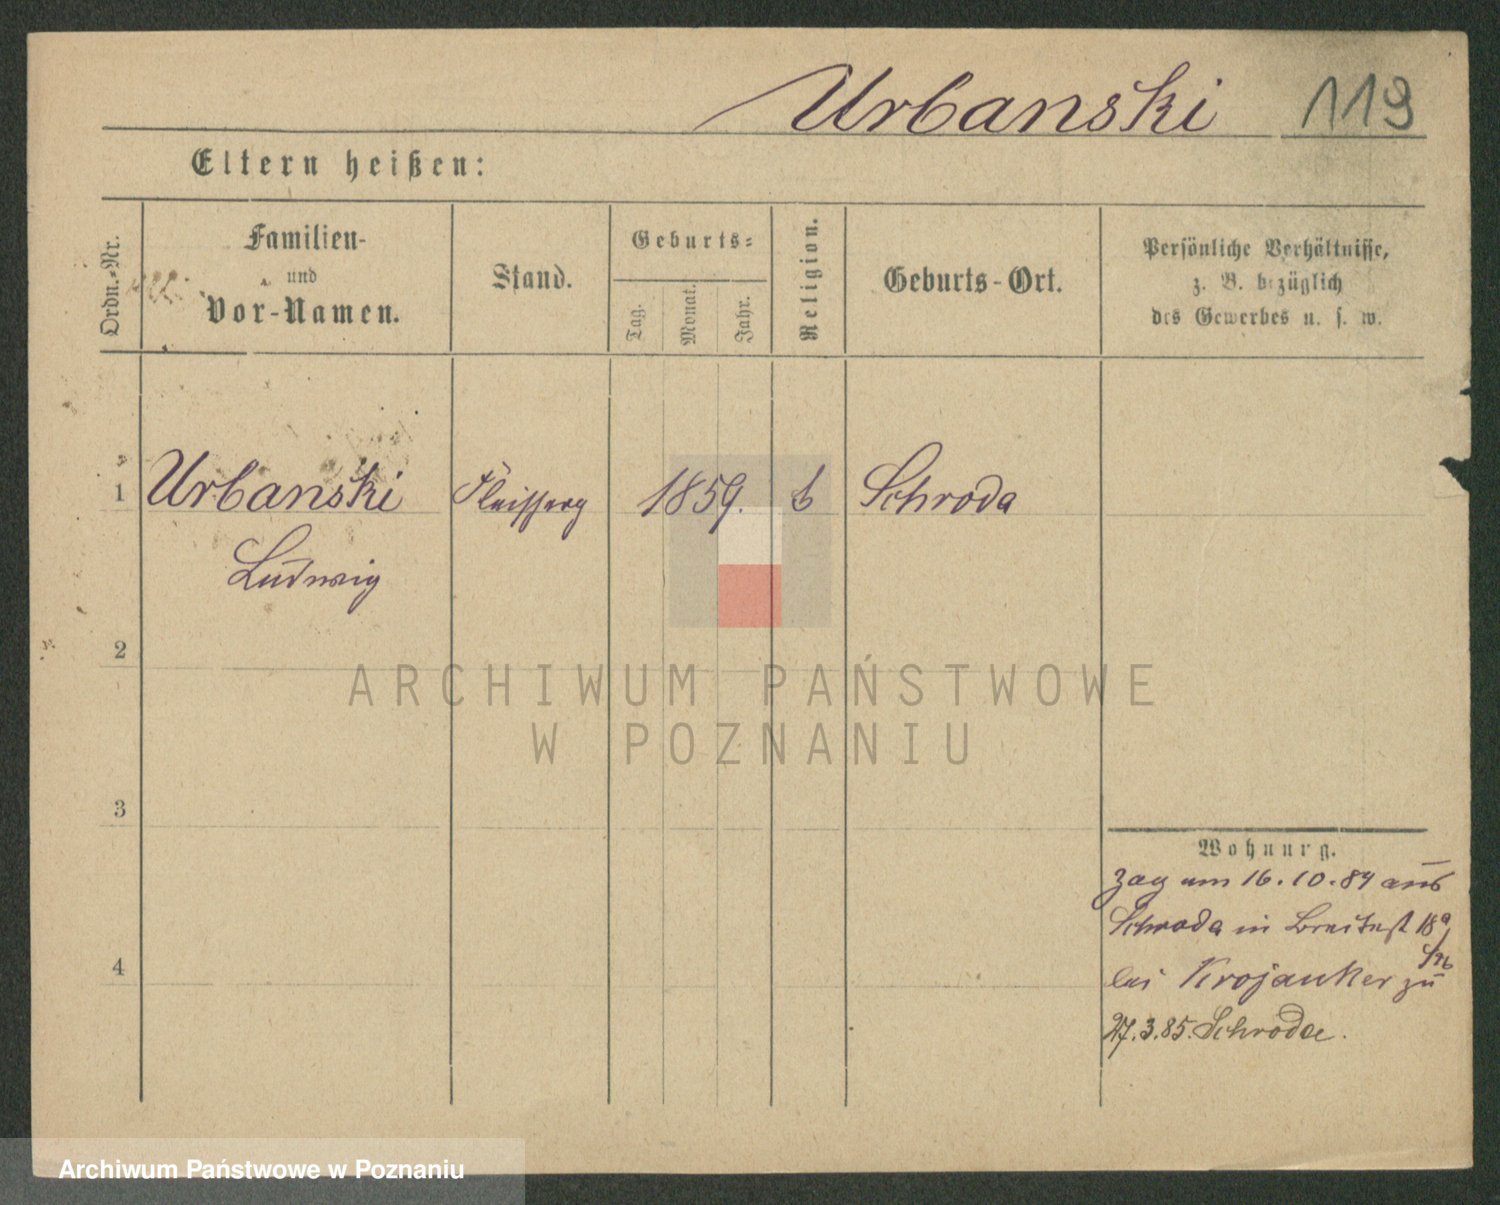 Urbanski 119
Eltern heißen:
Ordn.-Nr.
Familien-
und
Vor-Namen.
Stand.
Geburts-
Tag.
Monat.
Jahr.
Religion.
Geburts-Ort.
Persönliche Verhältnisse,
z. B. bezüglich
des Gewerbes u. s. w.
1 Urbanski 1859. Schroda
Ludwig
2
ARCHIWUM PAŃSTWOWE
W POZNANIU
3
4
Wohnung.
zog am 16.10.84 aus
Schroda in Breitestr 18a
bei Krojanker zu
27.3.85. Schroda.
Archiwum Państwowe w Poznaniu